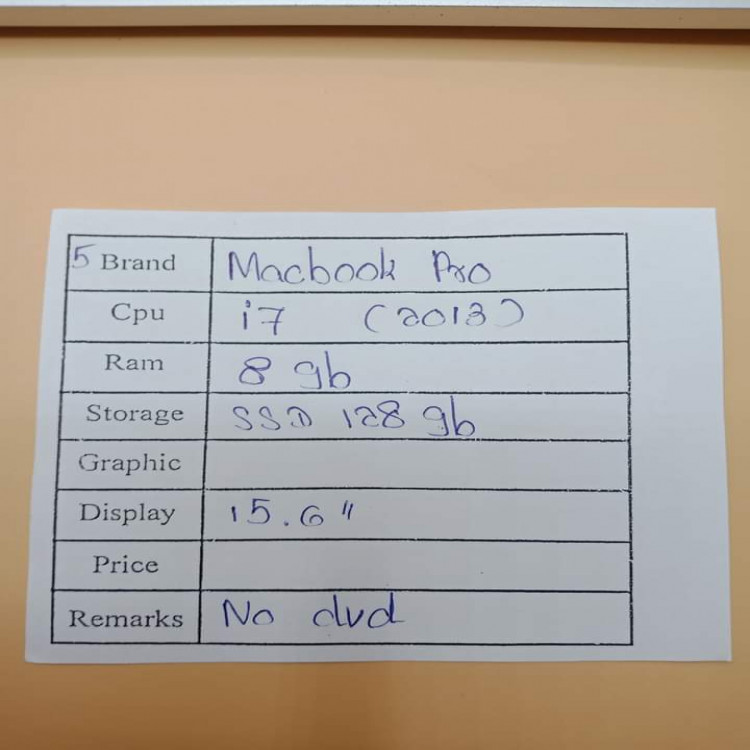 5 Brand Macbook Pro
Cpu i7 (2013)
Ram 8 gb
Storage SSD 128 gb
Graphic
Display 15.6"
Price
Remarks No dvd